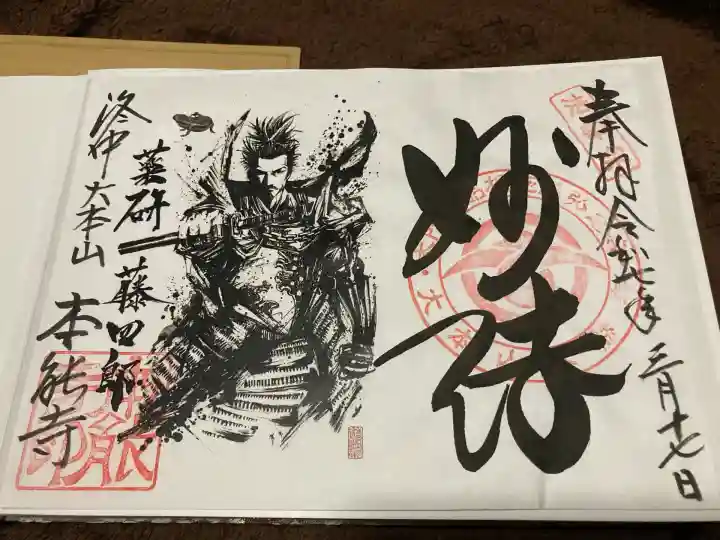 奉拝 令和七年 三月十七日
妙法
薬研藤四郎
洛中 大本山 本能寺